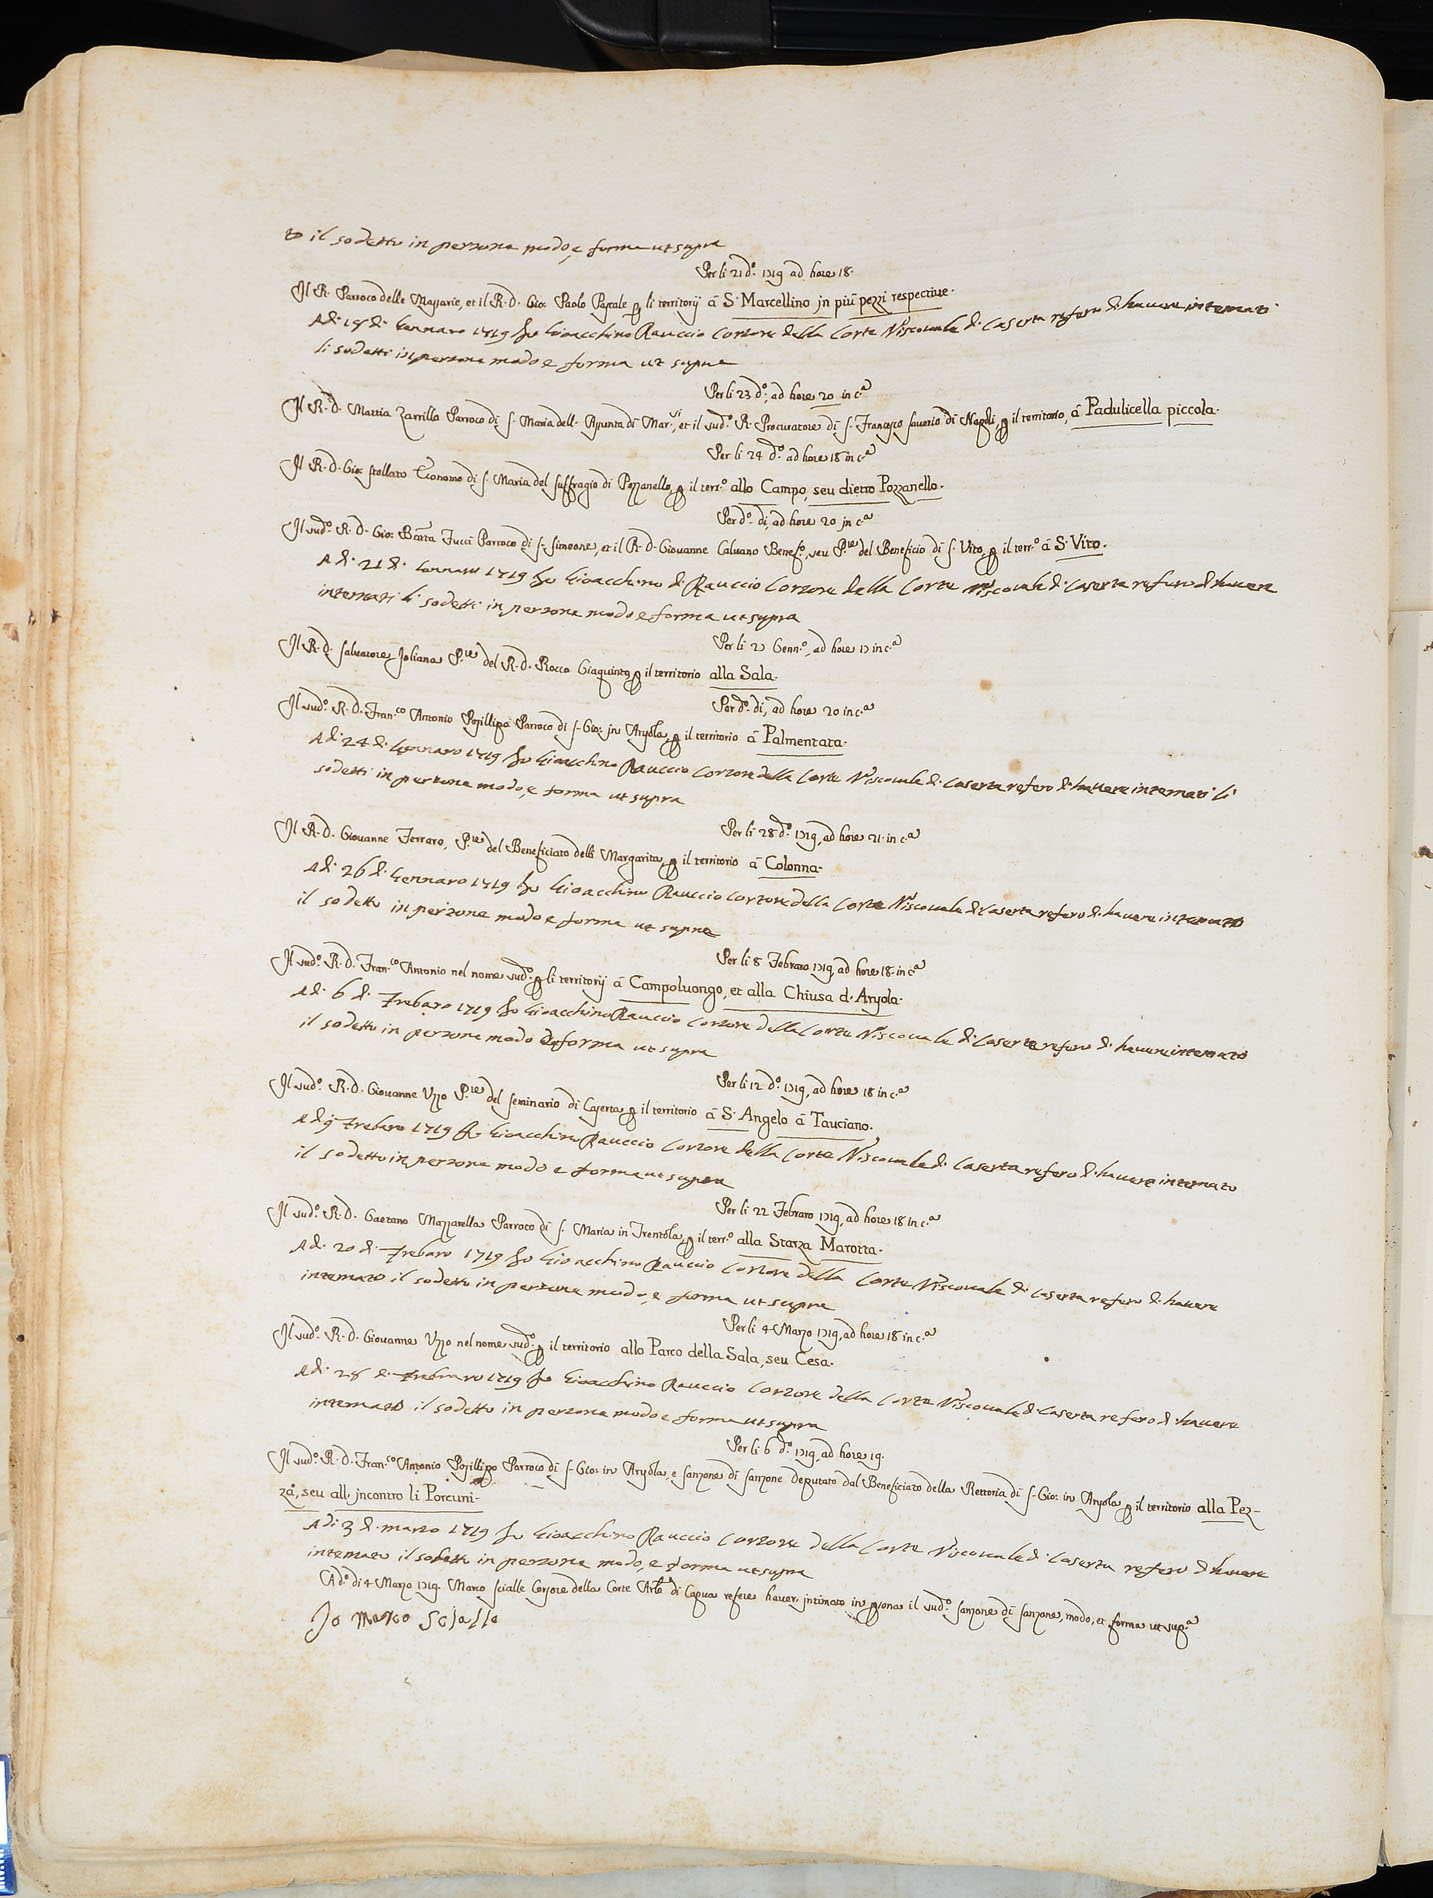 to il sodetto in persona modo, e forma ut supra
Per li 21 d.º 1719 ad hore 18.
Il R. Parroco delle Massarie, et il R. D. Gio: Paolo Pascale p li territorij à S. Marcellino in più pezzi respective.
A di 18 di Gennaro 1719 Io Gioacchino Rauccio Corsore della Corte Viscovale di Caserta refero di havere intemati
li sodetti in persona modo e forma ut supra
Per li 23 d.º, ad hore 20 in c.ª
Il R. D. Mattia Zarrillo Parroco di S. Maria dell' Assunta di Mar.si, et il sud.º R. Procuratore di S. Francesco Saverio di Napoli, p il territorio, à Padulicella piccola.
Per li 24 d.º ad hore 18 in c.ª
Il R. D. Gio: Stellato Economo di S. Maria del Suffragio di Pozzanello, p il terr.º allo Campo, seu dietro Pozzanello.
Per d.º di, ad hore 20 in c.ª
Il sud.º R. D. Gio: Batta Tucci Parroco di S. Simeone, et il R. D. Giovanne Calvano Benef.º, seu P.re del Beneficio di S. Vito, p il terr.º à S. Vito.
A di 21 di Gennaro 1719 Io Gioacchino di Rauccio Corsore della Corte Viscovale di Caserta refero di havere
intemati li sodetti in persona modo e forma ut supra
Per li 27 Genn.º, ad hore 17 in c.ª
Il R. D. Salvatore Joliana P.re del R. D. Rocco Giaquinto, p il territorio alla Sala.
Per d.º di, ad hore 20 in c.ª
Il sud.º R. D. Fran.co Antonio Posillipo Parroco di S. Gio: in Aryola, p il territorio à Palmentata.
A di 24 di Gennaro 1719 Io Gioacchino Rauccio Corsore della Corte Viscovale di Caserta refero di havere intemati li
sodetti in persona modo, e forma ut supra
Per li 28 d.º 1719, ad hore 21 in c.ª
Il R. D. Giovanne Ferraro, P.re del Beneficiato della Margarita, p il territorio à Colonna.
A di 26 di Gennaro 1719 Io Gioacchino Rauccio Corsore della Corte Viscovale di Caserta refero di havere intemato
il sodetto in persona modo e forma ut supra
Per li 8 Febraro 1719, ad hore 18 in c.ª
Il sud.º R. D. Fran.co Antonio nel nome sud.º p li territorij à Campoluongo, et alla Chiusa d'Aryola.
A di 6 di Frebaro 1719 Io Gioacchino Rauccio Corsore della Corte Viscovale di Caserta refero di havere intemato
il sodetto in persona modo e forma ut supra
Per li 12 d.º 1719, ad hore 18 in c.ª
Il sud.º R. D. Giovanne Uzzo P.re del Seminario di Caserta, p il territorio à S. Angelo à Tauciano.
A di 9 Frebaro 1719 Io Gioacchino Rauccio Corsore della Corte Viscovale di Caserta refero di havere intemato
il sodetto in persona modo e forma ut supra
Per li 22 Febraro 1719, ad hore 18 in c.ª
Il sud.º R. D. Gaetano Mazzarella Parroco di S. Maria in Trentola, p il terr.º alla Starza Marotta.
A di 20 di Frebaro 1719 Io Gioacchino Rauccio Corsore della Corte Viscovale di Caserta refero di havere
intemato il sodetto in persona modo, e forma ut supra
Per li 4 Marzo 1719, ad hore 18 in c.ª
Il sud.º R. D. Giovanne Uzzo nel nome sud.º p il territorio allo Parco della Sala, seu Cesa.
A di 28 di Frebraro 1719 Io Gioacchino Rauccio Corsore della Corte Viscovale di Caserta refero di havere
intemato il sodetto in persona modo e forma ut supra
Per li 6 d.º 1719, ad hore 19.
Il sud.º R. D. Fran.co Antonio Posillipo Parroco di S. Gio: in Aryola, e Sanzone di Sanzone Deputato dal Beneficiato della Rettoria di S. Gio: in Aryola, p il territorio alla Pez-
za, seu all' incontro li Porcini.
A di 3 di marzo 1719 Io Gioacchino Rauccio Corsore della Corte Viscovale di Caserta refero di havere
intemato il sodetto in persona modo, e forma ut supra
A d.º di 4 Marzo 1719 Marco Scialle Corsore della Corte Arle di Capua refere haver intimato in psona il sud.º Sanzone di Sanzone, modo, et forma ut sup.ª
Io Marco Scialla